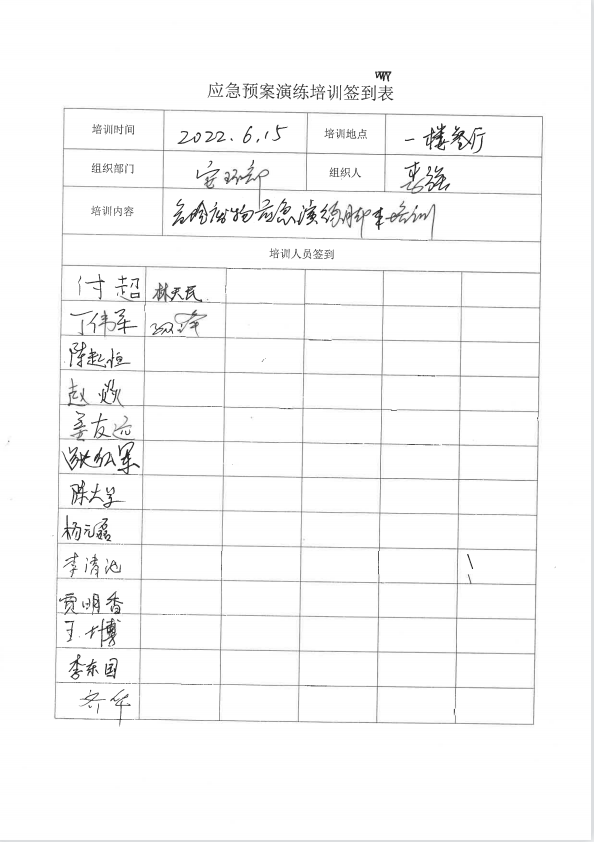 应急预案演练培训签到表
培训时间 2022.6.15 培训地点 一楼餐厅
组织部门 安环部 组织人 李强
培训内容 危险废物应急演练脚本培训
培训人员签到
付超 林天民
丁伟军
陈起恒
赵焱
姜友远
军
陈大学
杨元磊
李清池
贾明香
王博
李东国
齐华